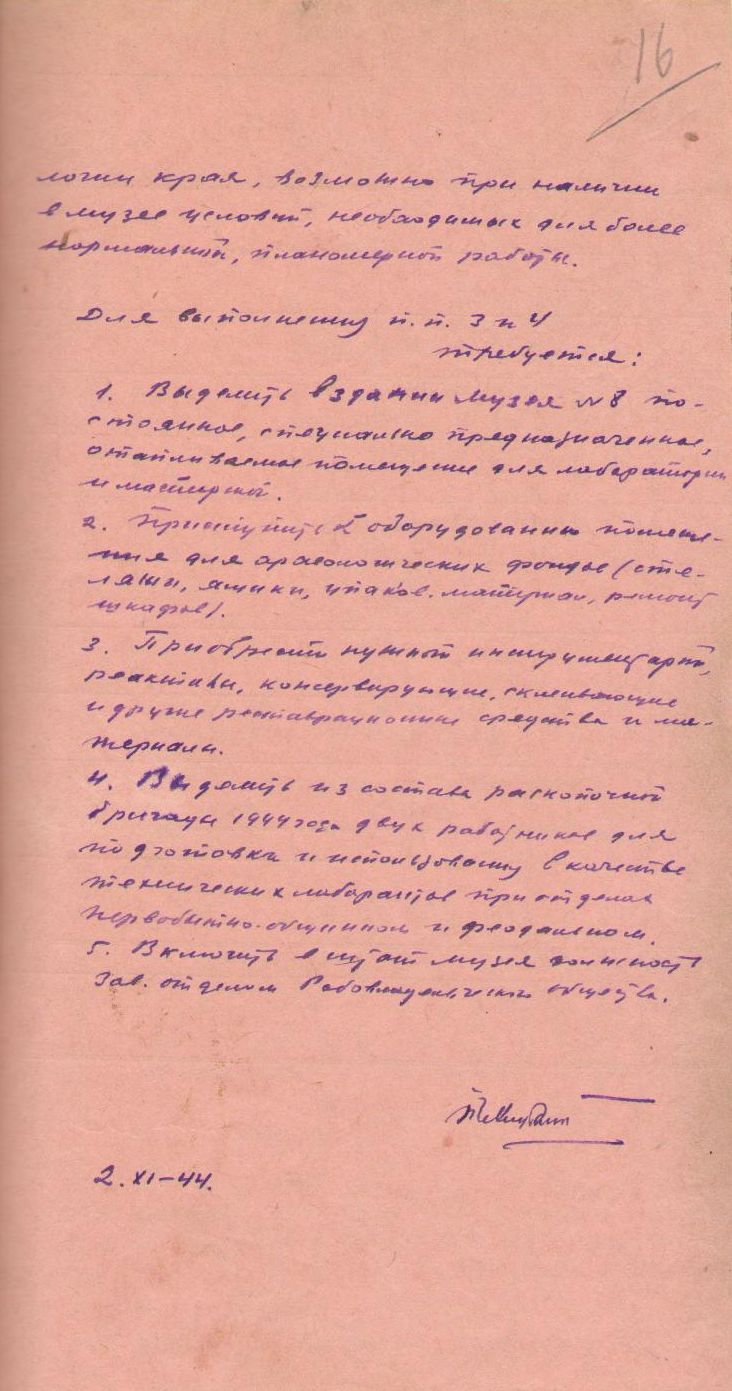 16
логии края, возможно при наличии
в музее условий, необходимых для более
нормальной, планомерной работы.
Для выполнения п.п. 3 и 4
требуется:
1. Выделить в здании музея № 8 по-
стоянное, специально предназначенное,
отапливаемое помещение для лаборатории
и мастерской.
2. Приступить к оборудованию помеще-
ния для археологических фондов (сте-
лажи, ящики, упаков. материал, ремонт
шкафов).
3. Приобрести нужный инструментарий,
реактивы, консервирующие, склеивающие
и другие реставрационные средства и ма-
териалы.
4. Выделить из состава раскопочной
бригады 1944 года двух работников для
подготовки и использования в качестве
технических лаборантов при отделах
первобытно-общинном и феодальном.
5. Включить в штат музея должность
Зав. отделом Рабовладельческого общества.
2. XI-44.